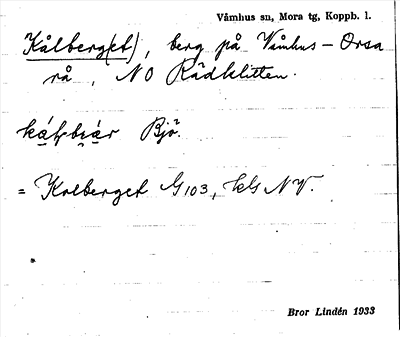 Våmhus sn, Mora tg, Koppb. l.
Kålberg(et), berg på Våmhus – Orsa
rå, NO Rädklitten.
Bjö.
= Kolberget G103, kls NV.
Bror Lindén 1933